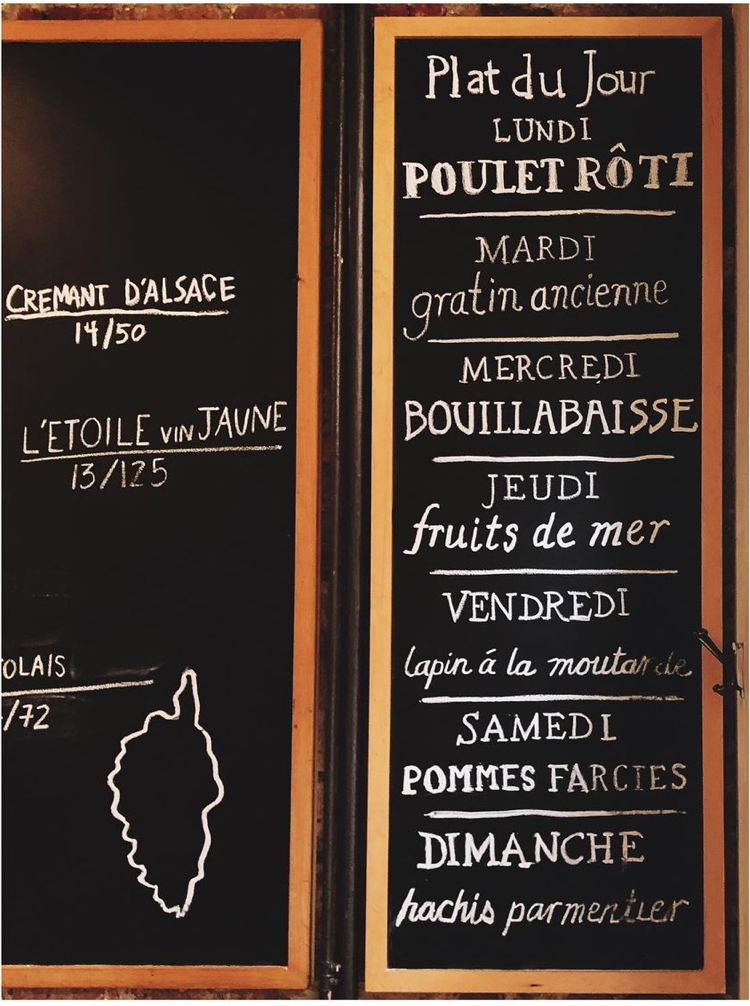 CREMANT D'ALSACE
14/50
L'ETOILE VIN JAUNE
13/125
OLAIS
/72
Plat du Jour
LUNDI
POULET RÔTI
MARDI
gratin ancienne
MERCREDI
BOUILLABAISSE
JEUDI
fruits de mer
VENDREDI
lapin á la moutarde
SAMEDI
POMMES FARCIES
DIMANCHE
hachis parmentier